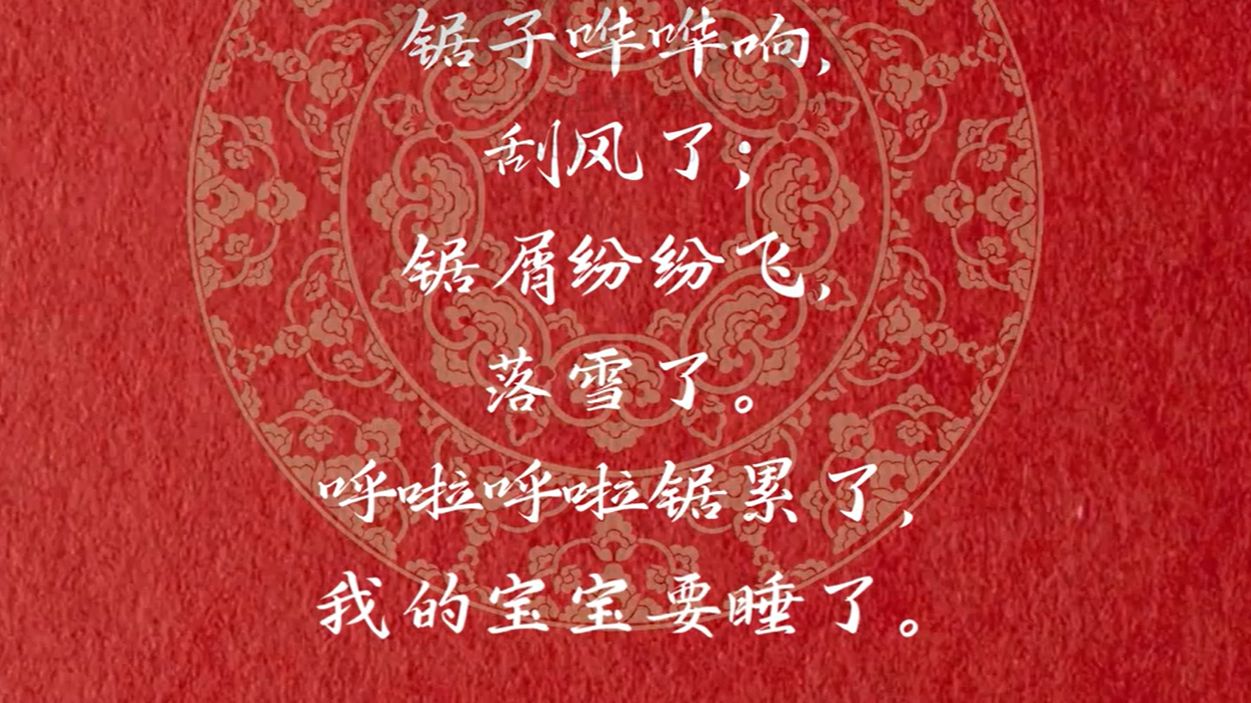 锯子哗哗响,
刮风了;
锯屑纷纷飞,
落雪了。
呼啦呼啦锯累了,
我的宝宝要睡了。